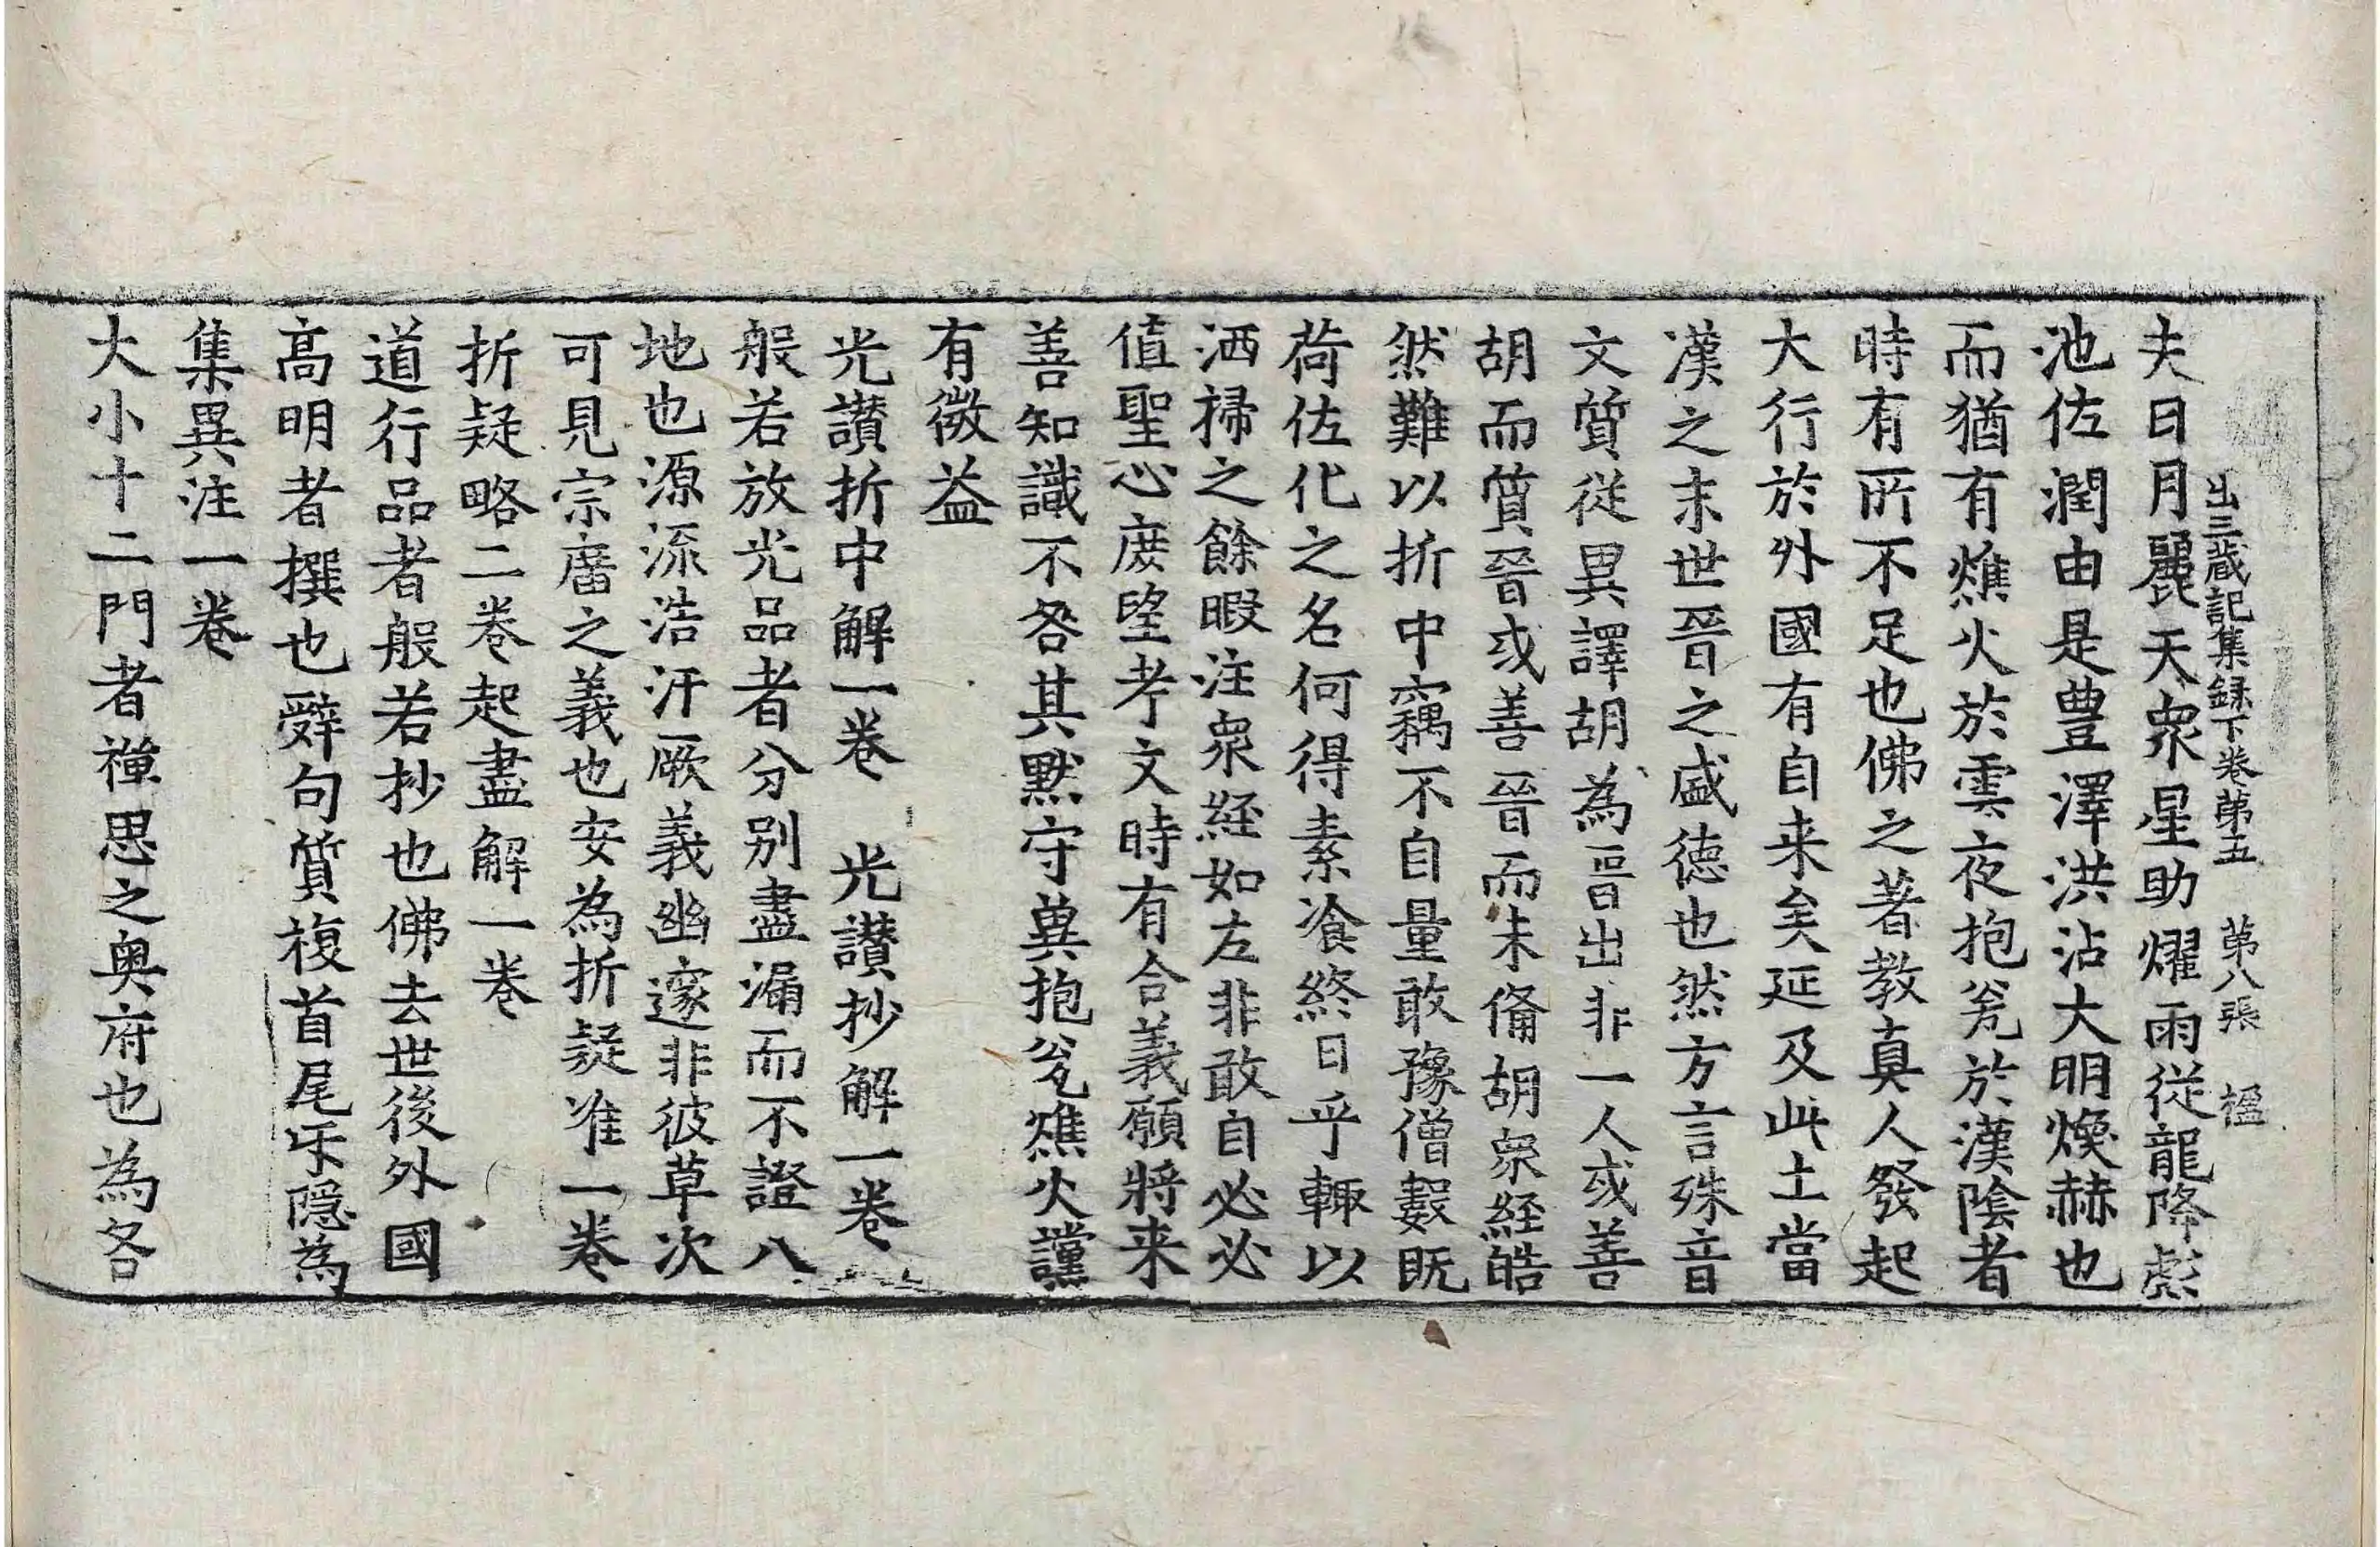 出三蔵記集録下卷苐五　苐八張　楹
夫日月麗天衆星助耀雨從龍降彪
池佐潤由是豊澤洪沾大明煥赫也
而猶有燋火於雲夜抱瓮於漢陰者
時有所不足也佛之著教真人發起
大行於外國有自来矣延及此土當
漢之末世晉之盛德也然方言殊音
文質從異譯胡為晉出非一人或善
胡而質晉或善晉而未備胡衆経皓
然難以折中竊不自量敢豫僧數既
荷佐化之名何得素飡終日乎輙以
洒掃之餘暇注衆経如左非敢自必必
值聖心庻望考文時有合義願將来
善知識不咎其默守冀抱瓮燋火讜
有微益
光讃折中解一卷　光讃抄解一卷
般若放光品者分别盡漏而不證八
地也源流浩汗厥義幽邃非彼草次
可見宗廧之義也安為折疑准一卷
折疑略二卷起盡解一卷
道行品者般若抄也佛去世後外國
髙明者撰也辤句質複首尾㸦隠為
集異注一卷
大小十二門者禪思之奥府也為各